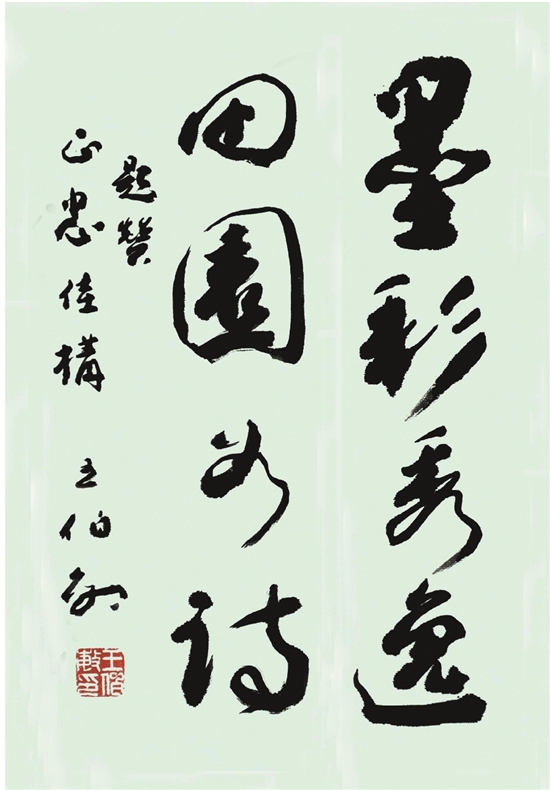 墨彩秀逸
田園如詩
題贊
正忠佳構 王伯敏
王伯敏印